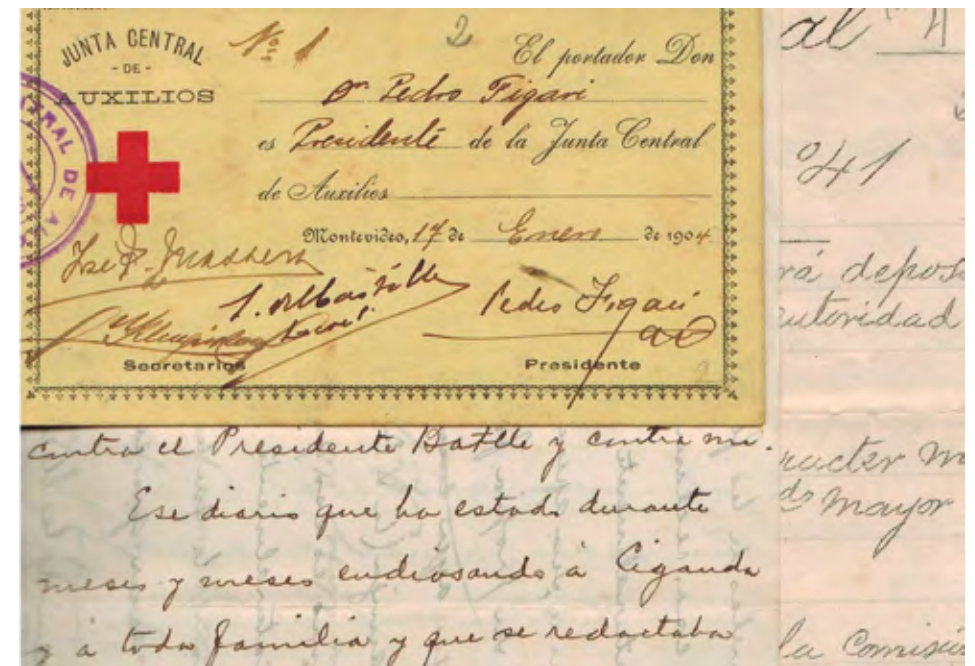 JUNTA CENTRAL
- DE -
AUXILIOS
Nº 1
2
El portador Don
Dr. Pedro Figari
es Presidente de la Junta Central
de Auxilios
Montevideo, 17 de Enero de 1904
José P.
Pedro Figari
Secretarios
Presidente
2
contra el Presidente Batlle y contra mi.
Ese diario que ha estado durante
meses y meses endiosando à Ciganda
y à toda familia y que se redactaba
al
4
041
rá depos
autoridad
racter m
do mayor
la Comisió